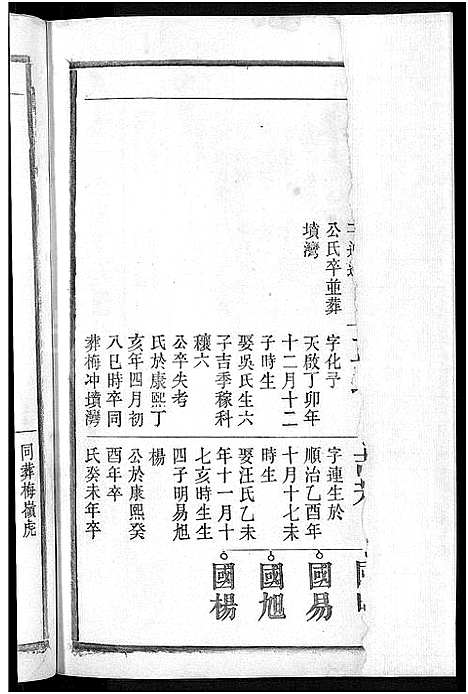 公氏卒並葬
墳灣
字化予
天啟丁卯年
十二月十二
子時生
娶吳氏生六
子吉季稼科
穰六
公卒失考
氏於康熙丁
亥年四月初
八巳時卒同
葬梅冲墳灣
字連生於
順治乙酉年
十月十七未
時生
娶汪氏乙未
年十一月十
七亥時生生
四子明易旭
楊
公於康熙癸
酉年卒
氏癸未年卒
國易
國旭
國楊
同葬梅嶺虎